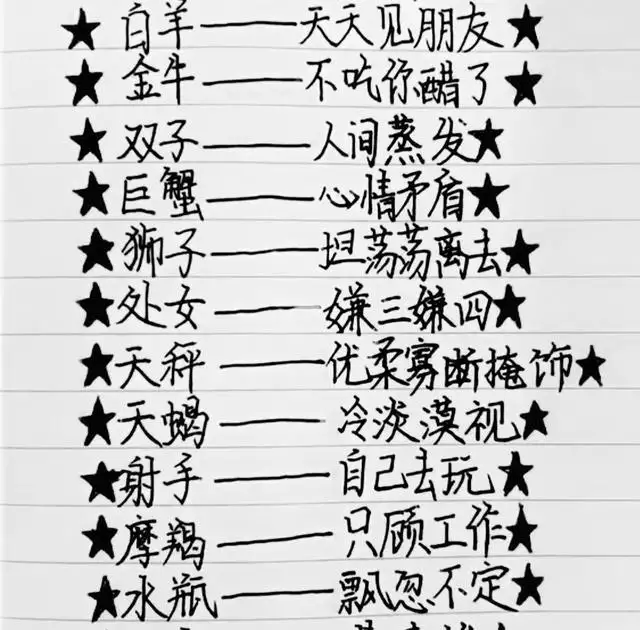 ★白羊——天天见朋友★
★金牛——不吃你醋了★
★双子——人间蒸发★
★巨蟹——心情矛盾★
★狮子——坦荡荡离去★
★处女——嫌三嫌四★
★天秤——优柔寡断掩饰★
★天蝎——冷淡漠视★
★射手——自己去玩★
★摩羯——只顾工作★
★水瓶——飘忽不定★